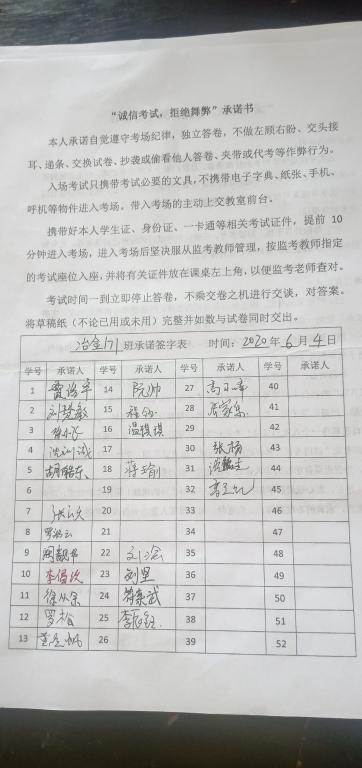 “诚信考试，拒绝舞弊”承诺书
本人承诺自觉遵守考场纪律，独立答卷，不做左顾右盼、交头接
耳、递条、交换试卷、抄袭或偷看他人答卷、夹带或代考等作弊行为。
入场考试只携带考试必要的文具，不携带电子字典、纸张、手机、
呼机等物件进入考场。带入考场的主动上交教室前台。
携带好本人学生证、身份证、一卡通等相关考试证件，提前 10
分钟进入考场，进入考场后坚决服从监考教师管理，按监考教师指定
的考试座位入座，并将有关证件放在课桌左上角，以便监考老师查对。
考试时间一到立即停止答卷，不乘交卷之机进行交谈，对答案。
将草稿纸（不论已用或未用）完整并如数与试卷同时交出。
冶金171班承诺签字表 时间：2020年6月4日
学号 承诺人 学号 承诺人 学号 承诺人 学号 承诺人
1 14 阮帅 27 40
2 15 28 41
3 16 温琪琪 29 42
4 17 30 张杨 43
5 胡鹏东 18 蒋瑜 31 44
6 19 32 45
7 20 33 46
8 21 34 47
9 22 35 48
10 李倡次 23 刘罡 36 49
11 24 37 50
12 罗松 25 38 51
13 26 39 52